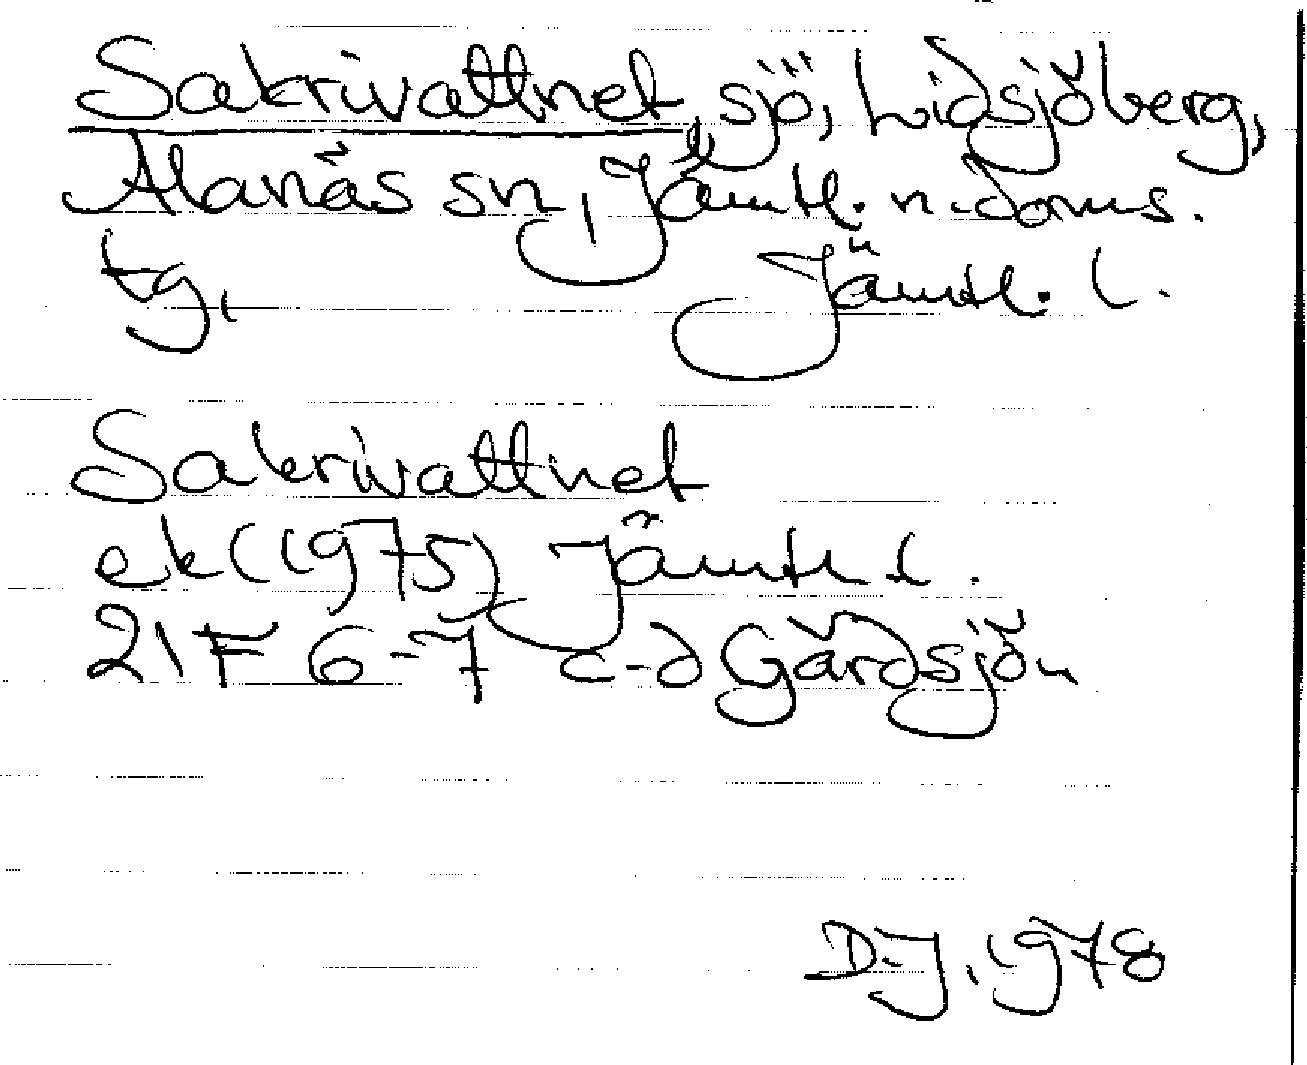 Sakrivattnet, sjö, Lidsjöberg,
Alanäs sn, Jämtl. n. doms.
tg, Jämtl. l.
Sakrivattnet
ek (1975) Jämtl l.
21 F 6-7 c-d Gårdsjön
D.J. 1978